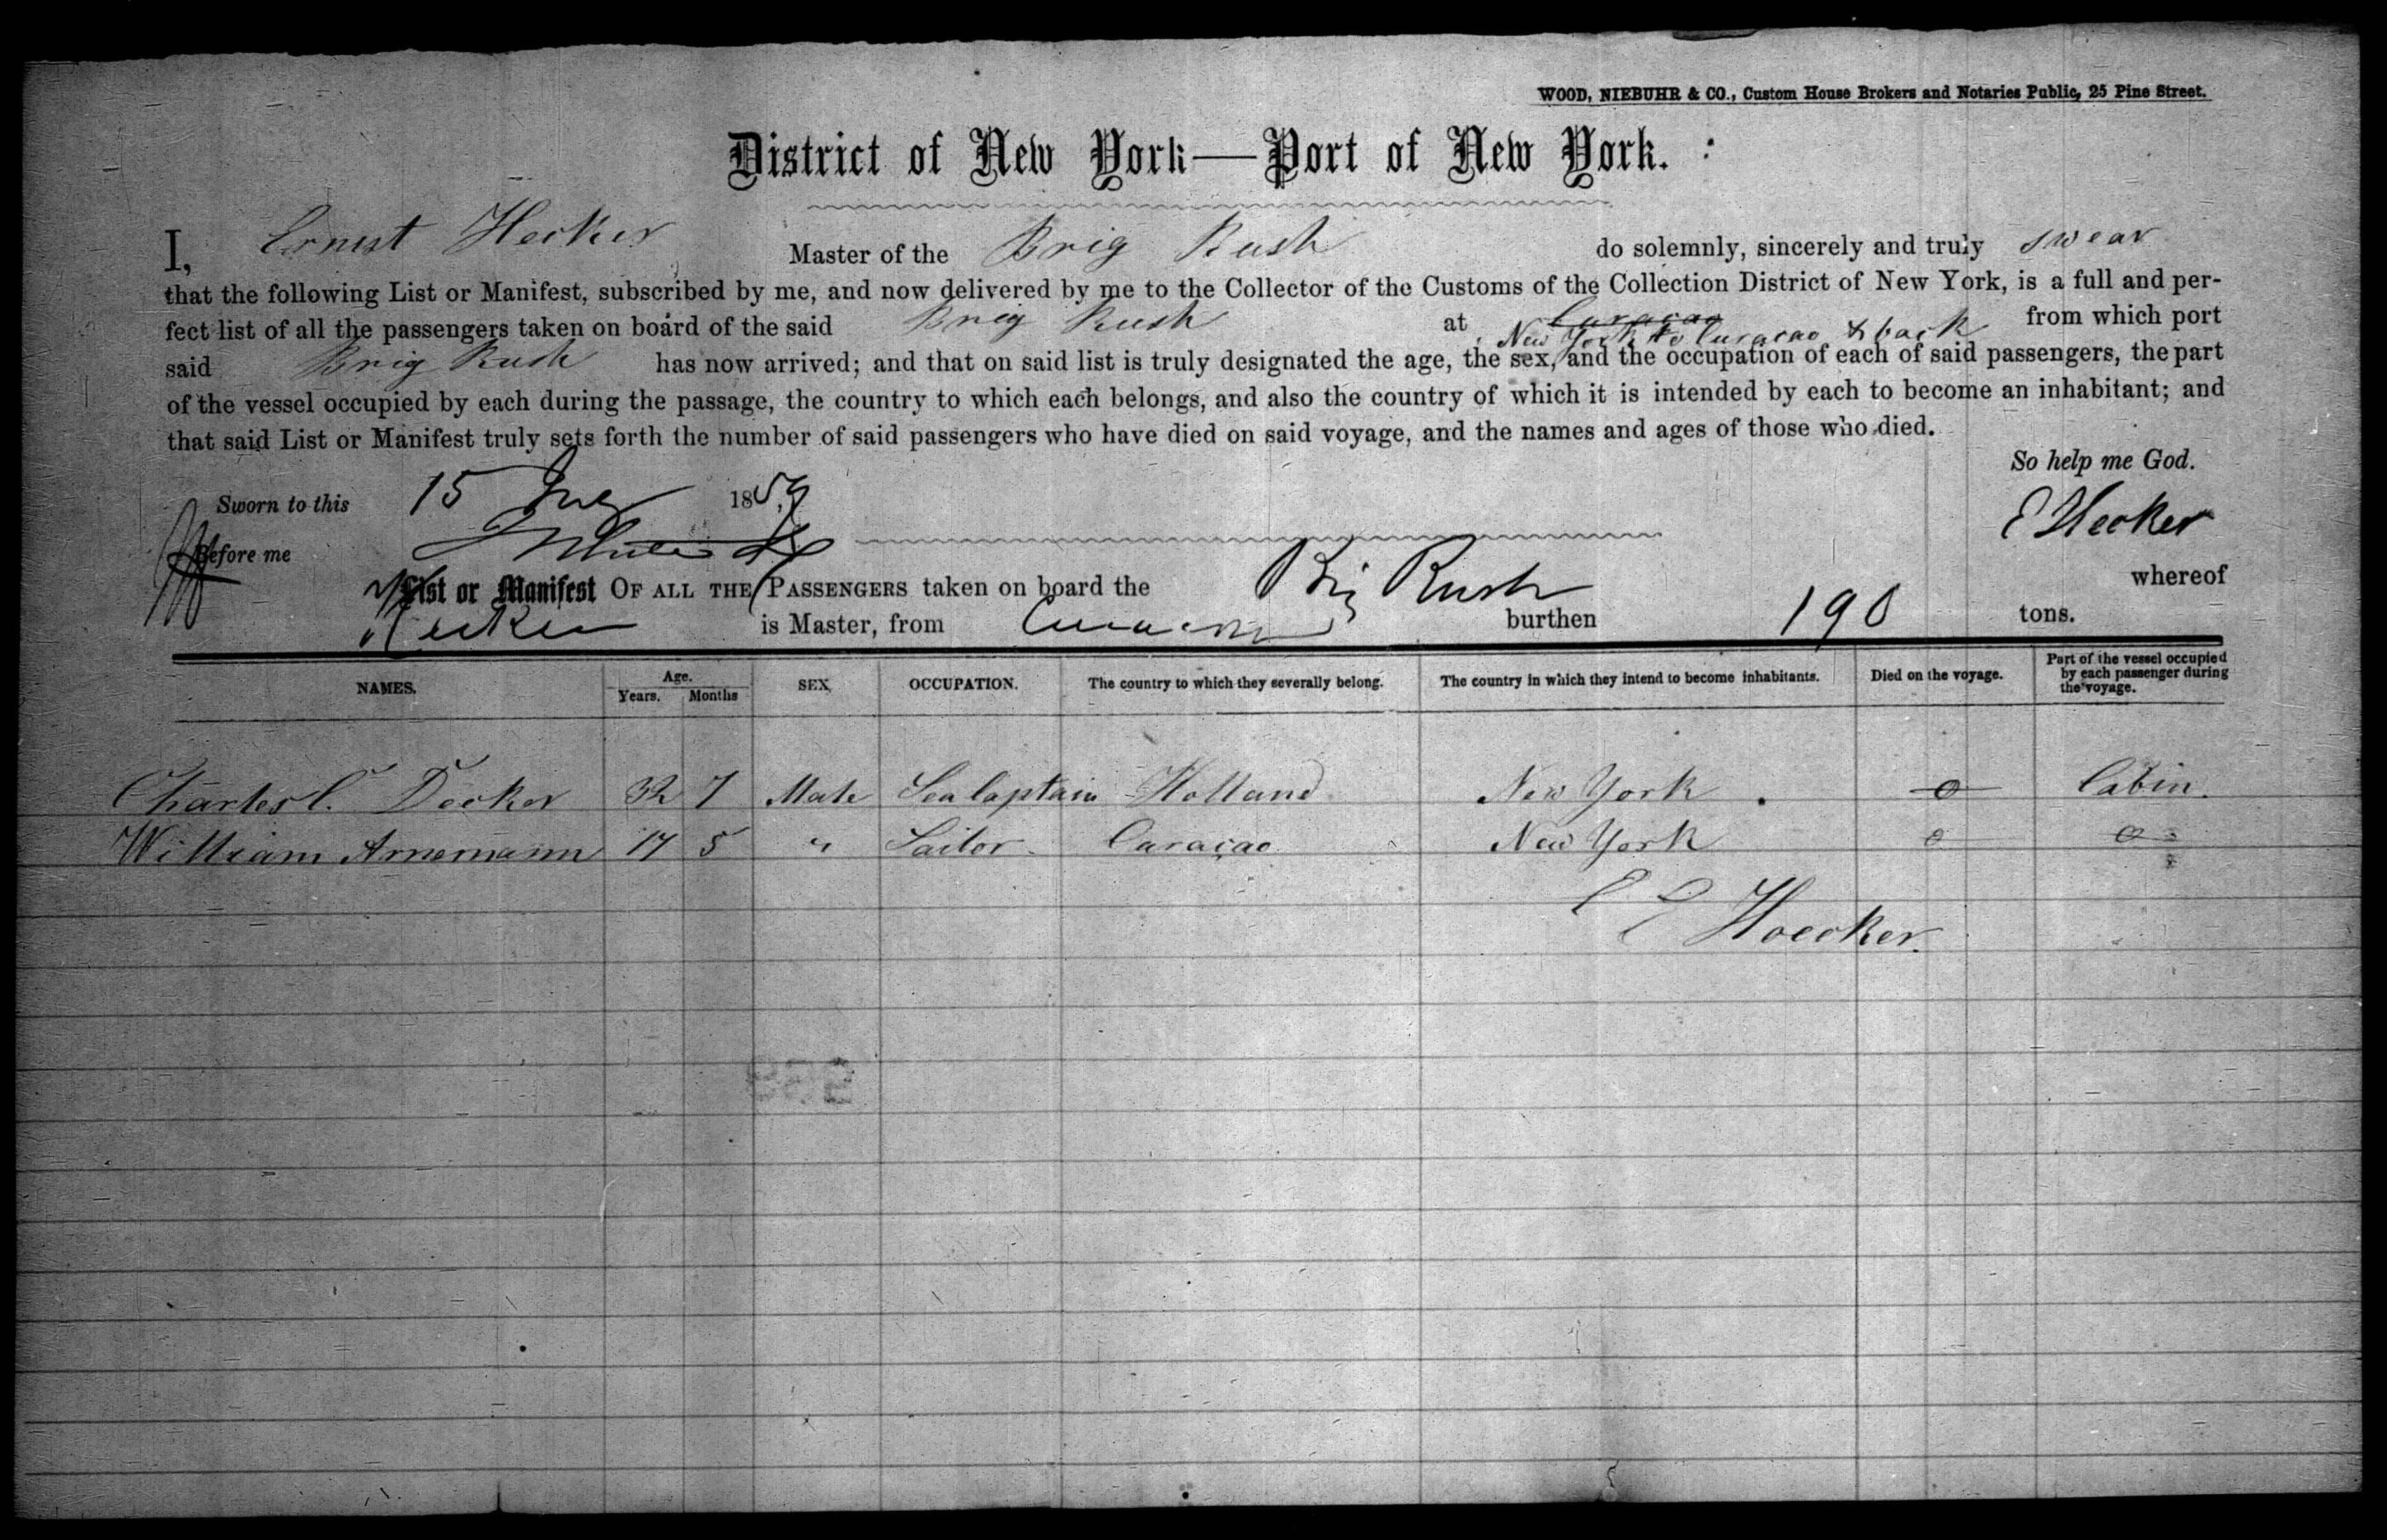 WOOD, NIEBUHR & CO., Custom House Brokers and Notaries Public, 25 Pine Street.
District of New York—Port of New York.
I, Ernest Hecker Master of the Brig Rush do solemnly, sincerely and truly swear
that the following List or Manifest, subscribed by me, and now delivered by me to the Collector of the Customs of the Collection District of New York, is a full and per-
fect list of all the passengers taken on board of the said Brig Rush at Curaçao New York to Curacao & back from which port
said Brig Rush has now arrived; and that on said list is truly designated the age, the sex, and the occupation of each of said passengers, the part
of the vessel occupied by each during the passage, the country to which each belongs, and also the country of which it is intended by each to become an inhabitant; and
that said List or Manifest truly sets forth the number of said passengers who have died on said voyage, and the names and ages of those who died.
So help me God.
Sworn to this 15 1859
E Hecker
Before me
List or Manifest OF ALL THE PASSENGERS taken on board the Brig Rush whereof
Hecker is Master, from Curacao burthen 190 tons.
NAMES. Age. Years. Months SEX, OCCUPATION. The country to which they severally belong. The country in which they intend to become inhabitants. Died on the voyage. Part of the vessel occupied by each passenger during the voyage.
Charles C. Decker 32 7 Male Sea Captain Holland New York 0 Cabin.
William Arnemann 17 5 " Sailor Curaçao New York 0 0
E G Hoecker.